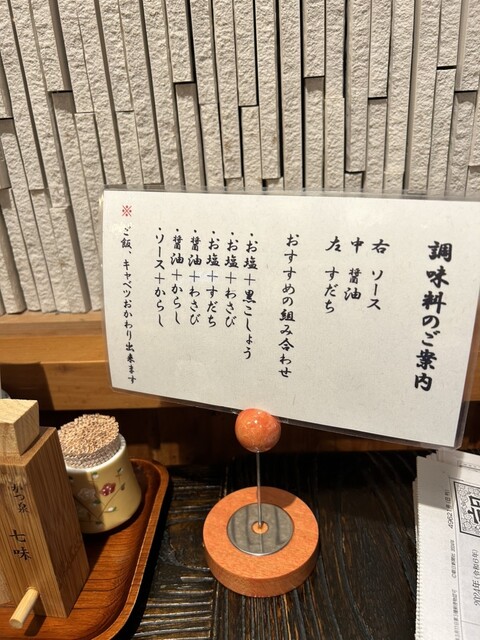 調味料のご案内
右 ソース
中 醤油
左 すだち
おすすめの組み合わせ
・お塩＋黒こしょう
・お塩＋わさび
・お塩＋すだち
・醤油＋わさび
・醤油＋からし
・ソース＋からし
※ご飯、キャベツおかわり出来ます
かつ泉
七味